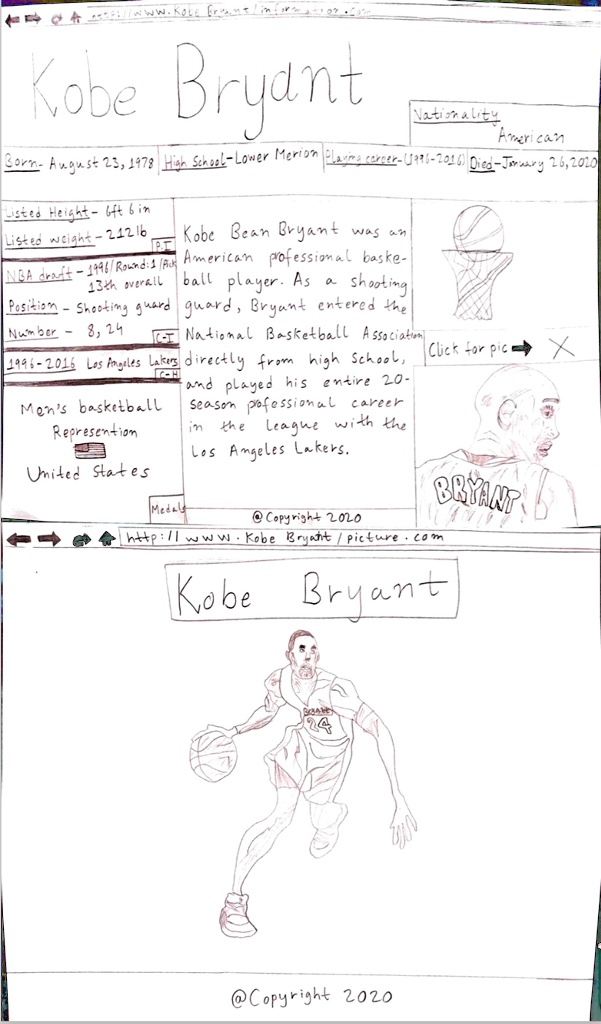 http://www.Kobe Bryant/information.com
Kobe Bryant
Nationality
American
Born- August 23, 1978
High School-Lower Merion
Playing career-(1996-2016)
Died-January 26, 2020
Listed Height- 6ft 6 in
Listed weight- 212lb
P.I
NBA draft- 1996/Round:1/Pick
13th overall
Position- Shooting guard
Number - 8, 24
C-I
1996-2016 Los Angeles Lakers
C-H
Men's basketball
Represention
United States
Medals
Kobe Bean Bryant was an
American professional baske-
ball player. As a shooting
guard, Bryant entered the
National Basketball Association
directly from high School,
and played his entire 20-
season professional career
in the league with the
Los Angeles Lakers.
Click for pic
BRYANT
@Copyright 2020
http://www.Kobe Bryant/picture.com
Kobe Bryant
BRYANT
24
@Copyright 2020